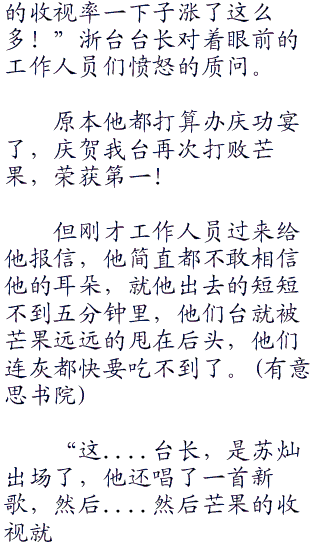 的收视率一下子涨了这么
多！”浙台台长对着眼前的
工作人员们愤怒的质问。
原本他都打算办庆功宴
了，庆贺我台再次打败芒
果，荣获第一！
但刚才工作人员过来给
他报信，他简直都不敢相信
他的耳朵，就他出去的短短
不到五分钟里，他们台就被
芒果远远的甩在后头，他们
连灰都快要吃不到了。(有意
思书院)
“这....台长，是苏灿
出场了，他还唱了一首新
歌，然后....然后芒果的收
视就